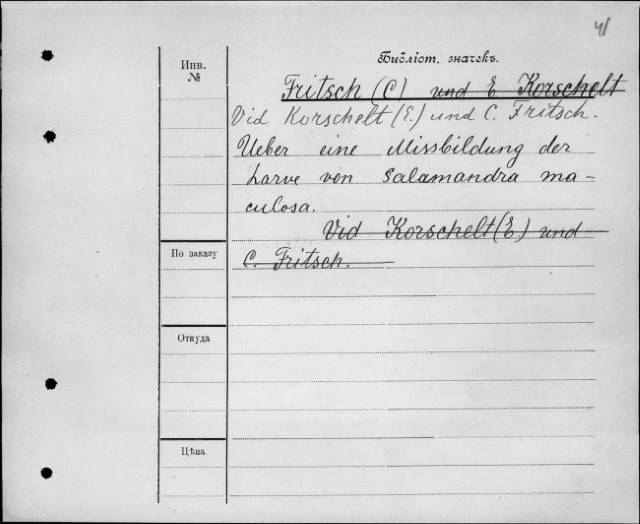 41
Библіот. значекъ.
Инв.
№
Fritsch (C) und E Korschelt
Vid Korschelt (E.) und C. Fritsch.
Ueber eine Missbildung der
Larve von Salamandra ma-
culosa.
Vid Korschelt (E.) und
C. Fritsch.
По заказу
Откуда
Цѣна